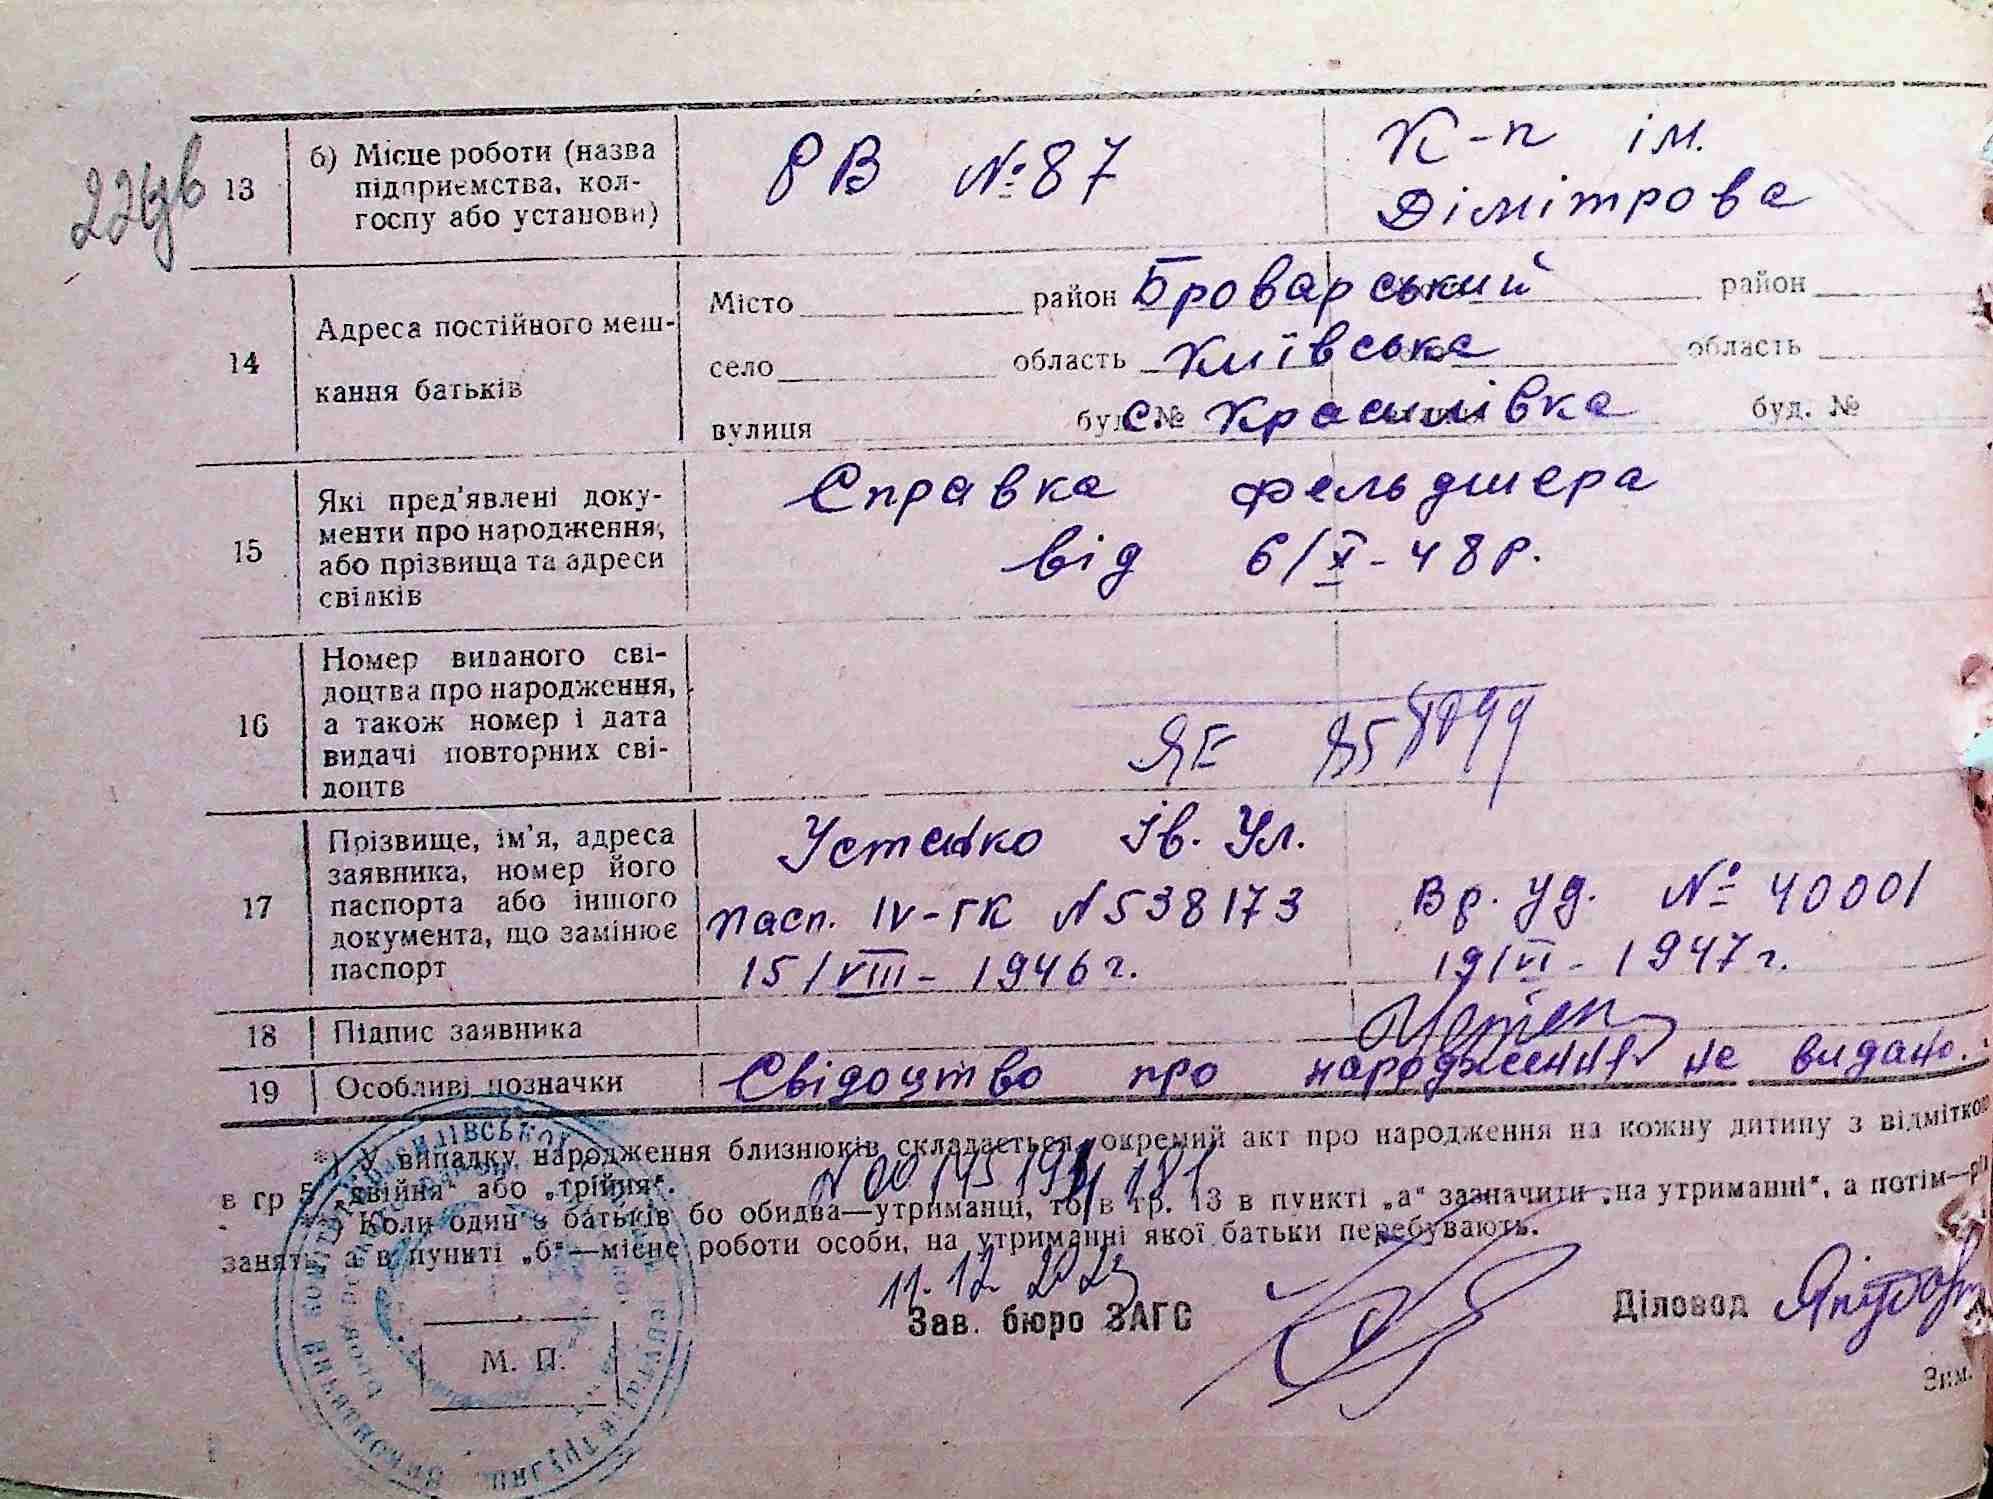 13 б) Місце роботи (назва підприємства, колгоспу або установи) РВ №87 К-п ім. Дімітрова
14 Адреса постійного мешкання батьків
Місто район Броварський район
село область Київська область
вулиця буд. № с. Красилівка буд. №
15 Які пред'явлені документи про народження, або прізвища та адреси свідків Справка фельдшера
від 6/X-48р.
16 Номер виданого свідоцтва про народження, а також номер і дата видачі повторних свідоцтв ЯЕ
17 Прізвище, ім'я, адреса заявника, номер його паспорта або іншого документа, що замінює паспорт
Устенко Ів. Ул.
пасп. IV-ГК N538173 Вр. уд. № 40001
15/VIII-1946г. 19/VI-1947г.
18 Підпис заявника
19 Особливі позначки Свідоцтво про народження не видано.
*) У випадку народження близнюків складається окремий акт про народження на кожну дитину з відміткою
в гр 5 „двійня" або „трійня".
**) Коли один з батьків бо обидва—утриманці, то в гр. 13 в пункті „а" зазначити „на утриманні", а потім—рід
занять, а в пункті „б"—місце роботи особи, на утриманні якої батьки перебувають.
11.12.2023
Зав. бюро ЗАГС Діловод
М. П.
Зим.